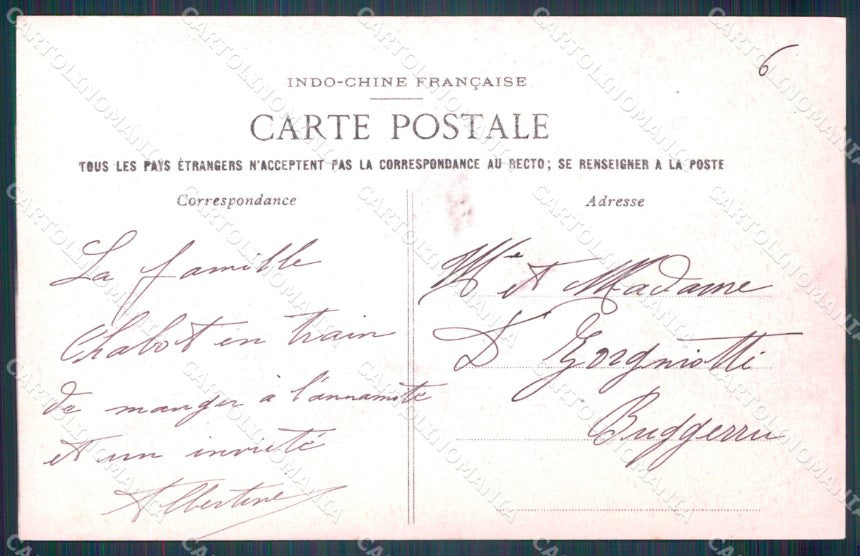 6
INDO-CHINE FRANÇAISE
CARTE POSTALE
TOUS LES PAYS ÉTRANGERS N'ACCEPTENT PAS LA CORRESPONDANCE AU RECTO; SE RENSEIGNER A LA POSTE
Correspondance
La famille
Chabot en train
de manger à l'annamite
et un invité
Albertine
Adresse
et Madame
Dr Gorgniotti
Buggerru
CARTOLINOMANIA